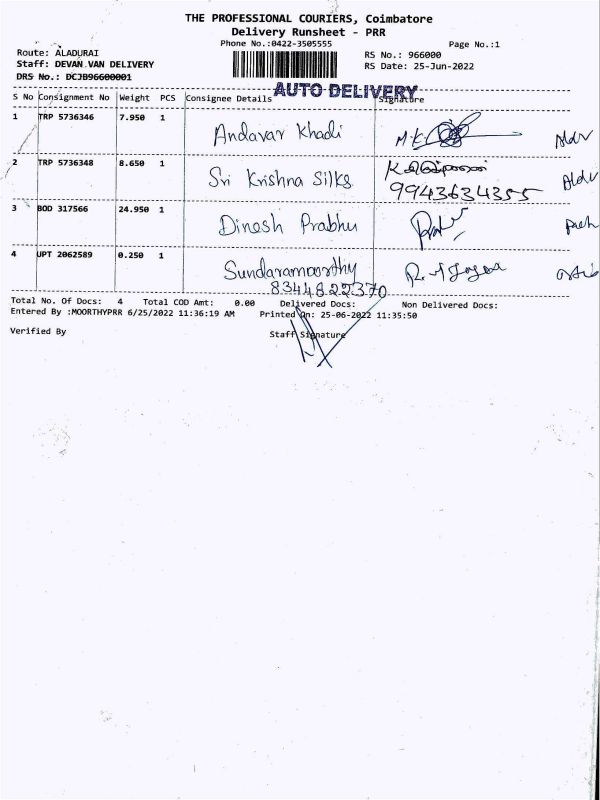 THE PROFESSIONAL COURIERS, Coimbatore
Delivery Runsheet - PRR
Phone No.:0422-3505555
Page No.:1
Route: ALADURAI
RS No.: 966000
Staff: DEVAN.VAN DELIVERY
RS Date: 25-Jun-2022
DRS No.: DCJB96600001
AUTO DELIVERY
S No Consignment No Weight PCS Consignee Details Signature
1 TRP 5736346 7.950 1 Andavar Khadi
2 TRP 5736348 8.650 1 Sri Krishna Silks
9943634355
3 BOD 317566 24.950 1 Dinesh Prabhu
4 UPT 2062589 0.250 1 Sundaramoorthy
8344822370
Total No. Of Docs: 4 Total COD Amt: 0.00 Delivered Docs: Non Delivered Docs:
Entered By :MOORTHYPRR 6/25/2022 11:36:19 AM Printed On: 25-06-2022 11:35:50
Verified By Staff Signature